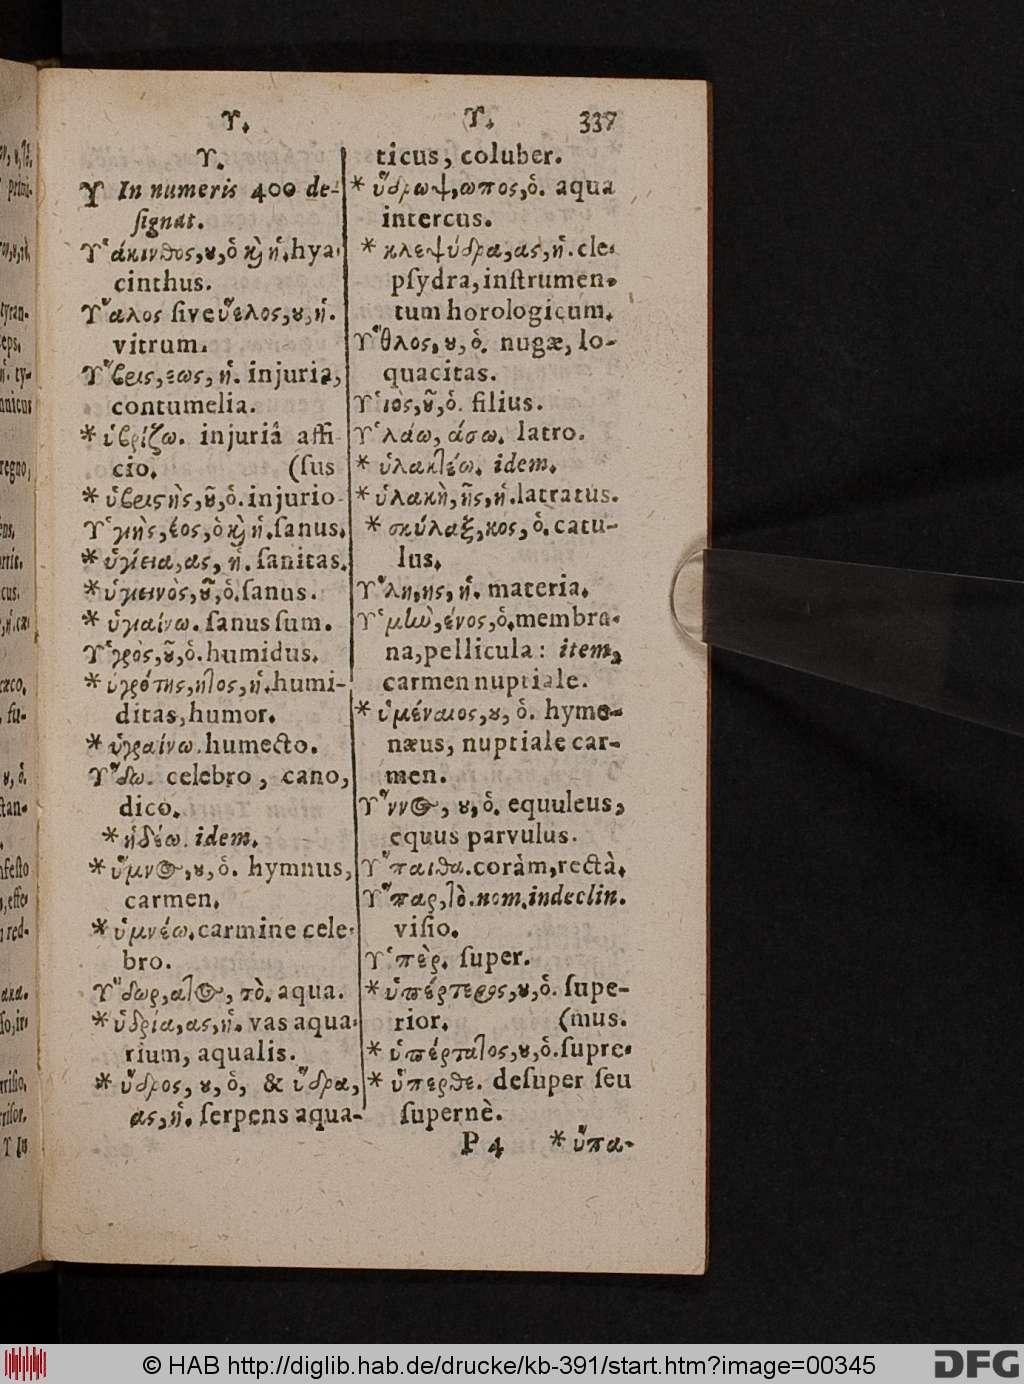 Υ.
Υ. 337
Υ.
Υ In numeris 400 de-
ſignat.
Υ῾άκινθος, ȣ, ὁ κ̀ ἡ. hya-
cinthus.
Υ῞αλος ſive ὕελος, ȣ, ἡ.
vitrum.
Υ῞βρις, εως, ἡ. injuria,
contumelia.
* ὑβρίζω. injuriâ affi
cio. (ſus
* ὑβριςὴς, ȣ͂, ὁ. injurio-
Υ῾γιὴς, έος, ὁ κ̀ ἡ. ſanus.
* ὑγίεια, ας, ἡ. ſanitas.
* ὑγιεινὸς, ȣ͂, ὁ. ſanus.
* ὑγιαίνω. ſanus ſum.
Υ῾γρὸς, ȣ͂, ὁ. humidus.
* ὑγρότης, ητος, ἡ. humi-
ditas, humor.
* ὑγραίνω. humecto.
Υ῞δω. celebro, cano,
dico.
* ὑδέω. idem.
* ὕμνος, ȣ, ὁ. hymnus,
carmen.
* ὑμνέω. carmine cele-
bro.
Υ῞δωρ, ατος, τὸ. aqua.
* ὑδρία, ας, ἡ. vas aqua-
rium, aqualis.
* ὕδρος, ȣ, ὁ, & ὕδρα,
ας, ἡ. ſerpens aqua-
ticus, coluber.
* ὕδρωψ, ωπος, ὁ. aqua
intercus.
* κλεψύδρα, ας, ἡ. cle-
pſydra, inſtrumen-
tum horologicum.
Υ῞θλος, ȣ, ὁ. nugæ, lo-
quacitas.
Υ῾ιὸς, ȣ͂, ὁ. filius.
Υ῾λάω, άσω. latro.
* ὑλακτέω. idem.
* ὑλακὴ, ῆς, ἡ. latratus.
* σκύλαξ, κος, ὁ. catu-
lus.
Υ῞λη, ης, ἡ. materia.
Υ῾μὴν, ένος, ὁ. membra-
na, pellicula: item,
carmen nuptiale.
* ὑμέναιος, ȣ, ὁ. hyme-
næus, nuptiale car-
men.
Υ῞ννος, ȣ, ὁ. equuleus,
equus parvulus.
Υ῞παιθα. coràm, rectà.
Υ῞παρ, τὸ. nom. indeclin.
viſio.
Υ῾πὲρ. ſuper.
* ὑπέρτερος, ȣ, ὁ. ſupe-
rior. (mus.
* ὑπέρτατος, ȣ, ὁ. ſupre-
* ὕπερθε. deſuper ſeu
ſupernè.
P 4 * ὕπα-
© HAB http://diglib.hab.de/drucke/kb-391/start.htm?image=00345
DFG